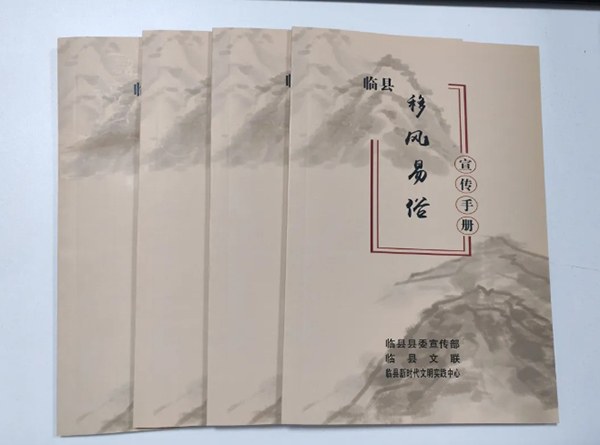 临县
移风易俗
宣传手册
临县县委宣传部
临县文联
临县新时代文明实践中心